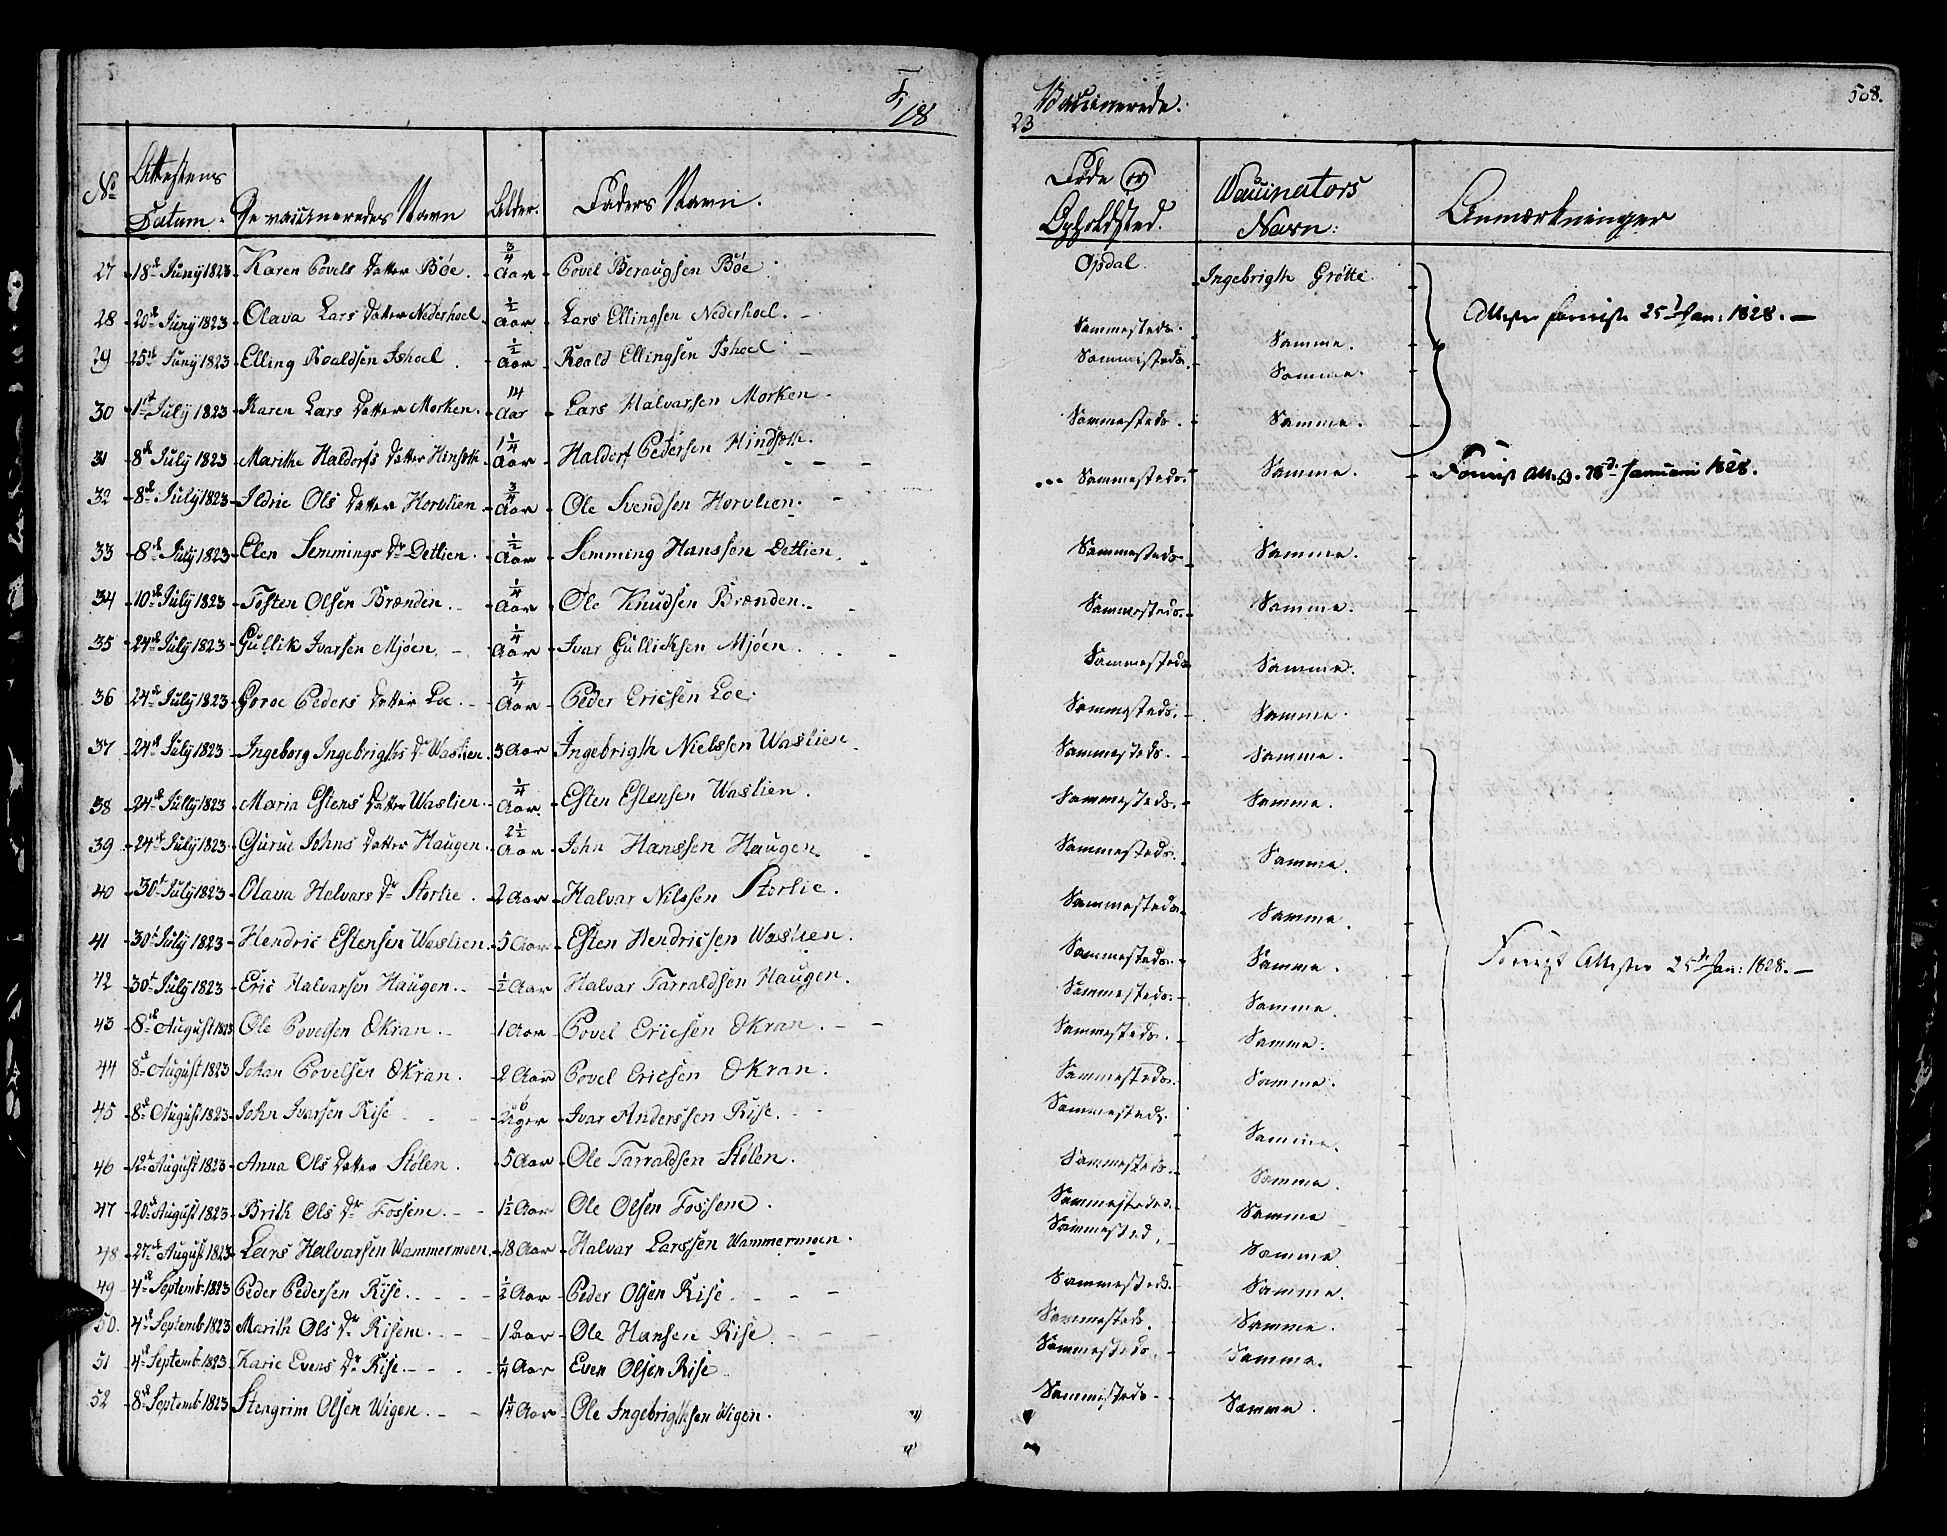 F. 18 23 Vaccinerede. 508.
No Attestens Datum. De vaccineredes Navn Alder. Faders Navn. Føde og Opholdsted. Vaccinators Navn: Anmærkninger
27 18de Juny 1823 Karen Povels Datter Böe. 3/4 Aar Povel Beraugsen Böe Opdal. Ingebrigth Grötte
28 20de Juny 1823 Olava Lars Datter Nederhoel 1/2 Aar Lars Ellingsen Nederhoel. Sammesteds. Samme. Attester 25d Jan: 1828.
29 25de Juny 1823 Elling Roaldsen Ishoel. 1/2 Aar Roald Ellingsen Ishoel Sammesteds. Samme.
30 1st July 1823 Karen Lars Datter Morken. 14 Aar Lars Halvarsen Morken. Sammesteds. Samme.
31 8de July 1823 Marithe Haldorfs Datter Hinsæth 1 1/4 Aar Haldorf Pedersen Hindsæth. Sammesteds. Samme. Januari 1828.
32 8de July 1823 Ildrie Ols Datter Horvlien 3/4 Aar Ole Svendsen Horvlien.
33 8de July 1823 Elen Semmings Dr Detlien. 1/2 Aar Semming Hanssen Detlien. Sammesteds. Samme.
34 10de July 1823 Tosten Olsen Brænden. 1/4 Aar Ole Knudsen Brænden. Sammesteds. Samme.
35 24de July 1823 Gullik Ivarsen Mjöen. 1/4 Aar Ivar Gulliksen Mjöen. Sammesteds Samme.
36 24de July 1823 Goroe Peders Datter Loe. 1/4 Aar Peder Ericsen Loe. Sammesteds. Samme.
37 24de July 1823 Ingeborg Ingebrigths Dr Waslien. 3 Aar Ingebrigth Nielssen Waslien Sammesteds. Samme.
38 24de July 1823 Maria Estens Datter Waslien. 1/4 Aar. Esten Estensen Waslien. Sammesteds. Samme.
39 24de July 1823 Gurue Johns Datter Haugen. 2 1/2 Aar John Hanssen Haugen. Sammesteds. Samme.
40 30t July 1823 Olava Halvars Dr Storlie. 2 Aar Halvar Nilssen Storlie. Sammesteds. Samme.
41 30t July 1823 Hendric Estensen Waslien. 5 Aar Esten Hendricsen Waslien. Sammesteds. Samme. Attester 25d Jan: 1828.
42 30t July 1823 Eric Halvarsen Haugen. 1/2 Aar Halvar Tarraldsen Haugen. Sammesteds. Samme.
43 8de August 1823 Ole Povelsen Økran. 1 Aar Povel Ericsen Økran. Sammesteds. Samme.
44 8de August 1823 Johan Povelsen Økran. 2 Aar Povel Ericsen Økran. Sammesteds. Samme.
45 8de August 1823 John Ivarsen Rise 6 Uger Ivar Anderssen Rise. Sammesteds.
46 12te August 1823 Anna Ols Datter Stölen. 5 Aar Ole Tarraldsen Stölen. Sammesteds. Samme.
47 20de August 1823 Brith Ols Dr Fossem. 1 1/2 Aar Ole Olsen Fossem. Sammestedes. Samme.
48 27de August 1823 Lars Halvarsen Wammermoen. 18 Aar Halvar Larssen Wammermoen. Sammested. Samme
49 4de Septemb. 1823 Peder Pedersen Rise. 1/2 Aar Peder Olsen Rise. Sammesteds. Samme.
50. 4de Septemb. 1823 Marith Ols Dr Risem. 1 Aar Ole Hansen Rise. Sammesteds. Samme.
51 4de Septemb. 1823 Karie Evens Dr Rise. 1/4 Aar Even Olsen Rise Sammesteds. Samme.
52 8de Septemb. 1823 Stengrim Olsen Wigen. 1 1/4 Aar Ole Ingebrigthsen Wigen. Sammesteds. Samme.